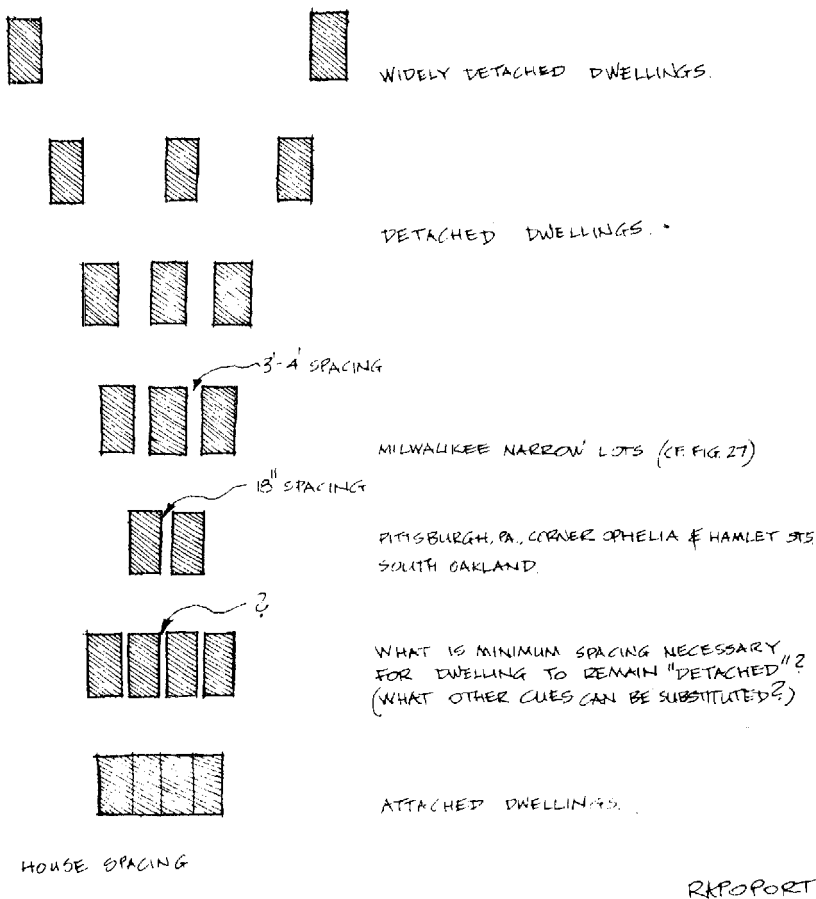 WIDELY DETACHED DWELLINGS.
DETACHED DWELLINGS.
3'-4' SPACING
MILWAUKEE NARROW LOTS (CF. FIG. 27)
18" SPACING
PITTSBURGH, PA., CORNER OPHELIA & HAMLET STS.
SOUTH OAKLAND.
?
WHAT IS MINIMUM SPACING NECESSARY
FOR DWELLING TO REMAIN "DETACHED"?
(WHAT OTHER CUES CAN BE SUBSTITUTED?)
ATTACHED DWELLINGS.
HOUSE SPACING
RAPOPORT